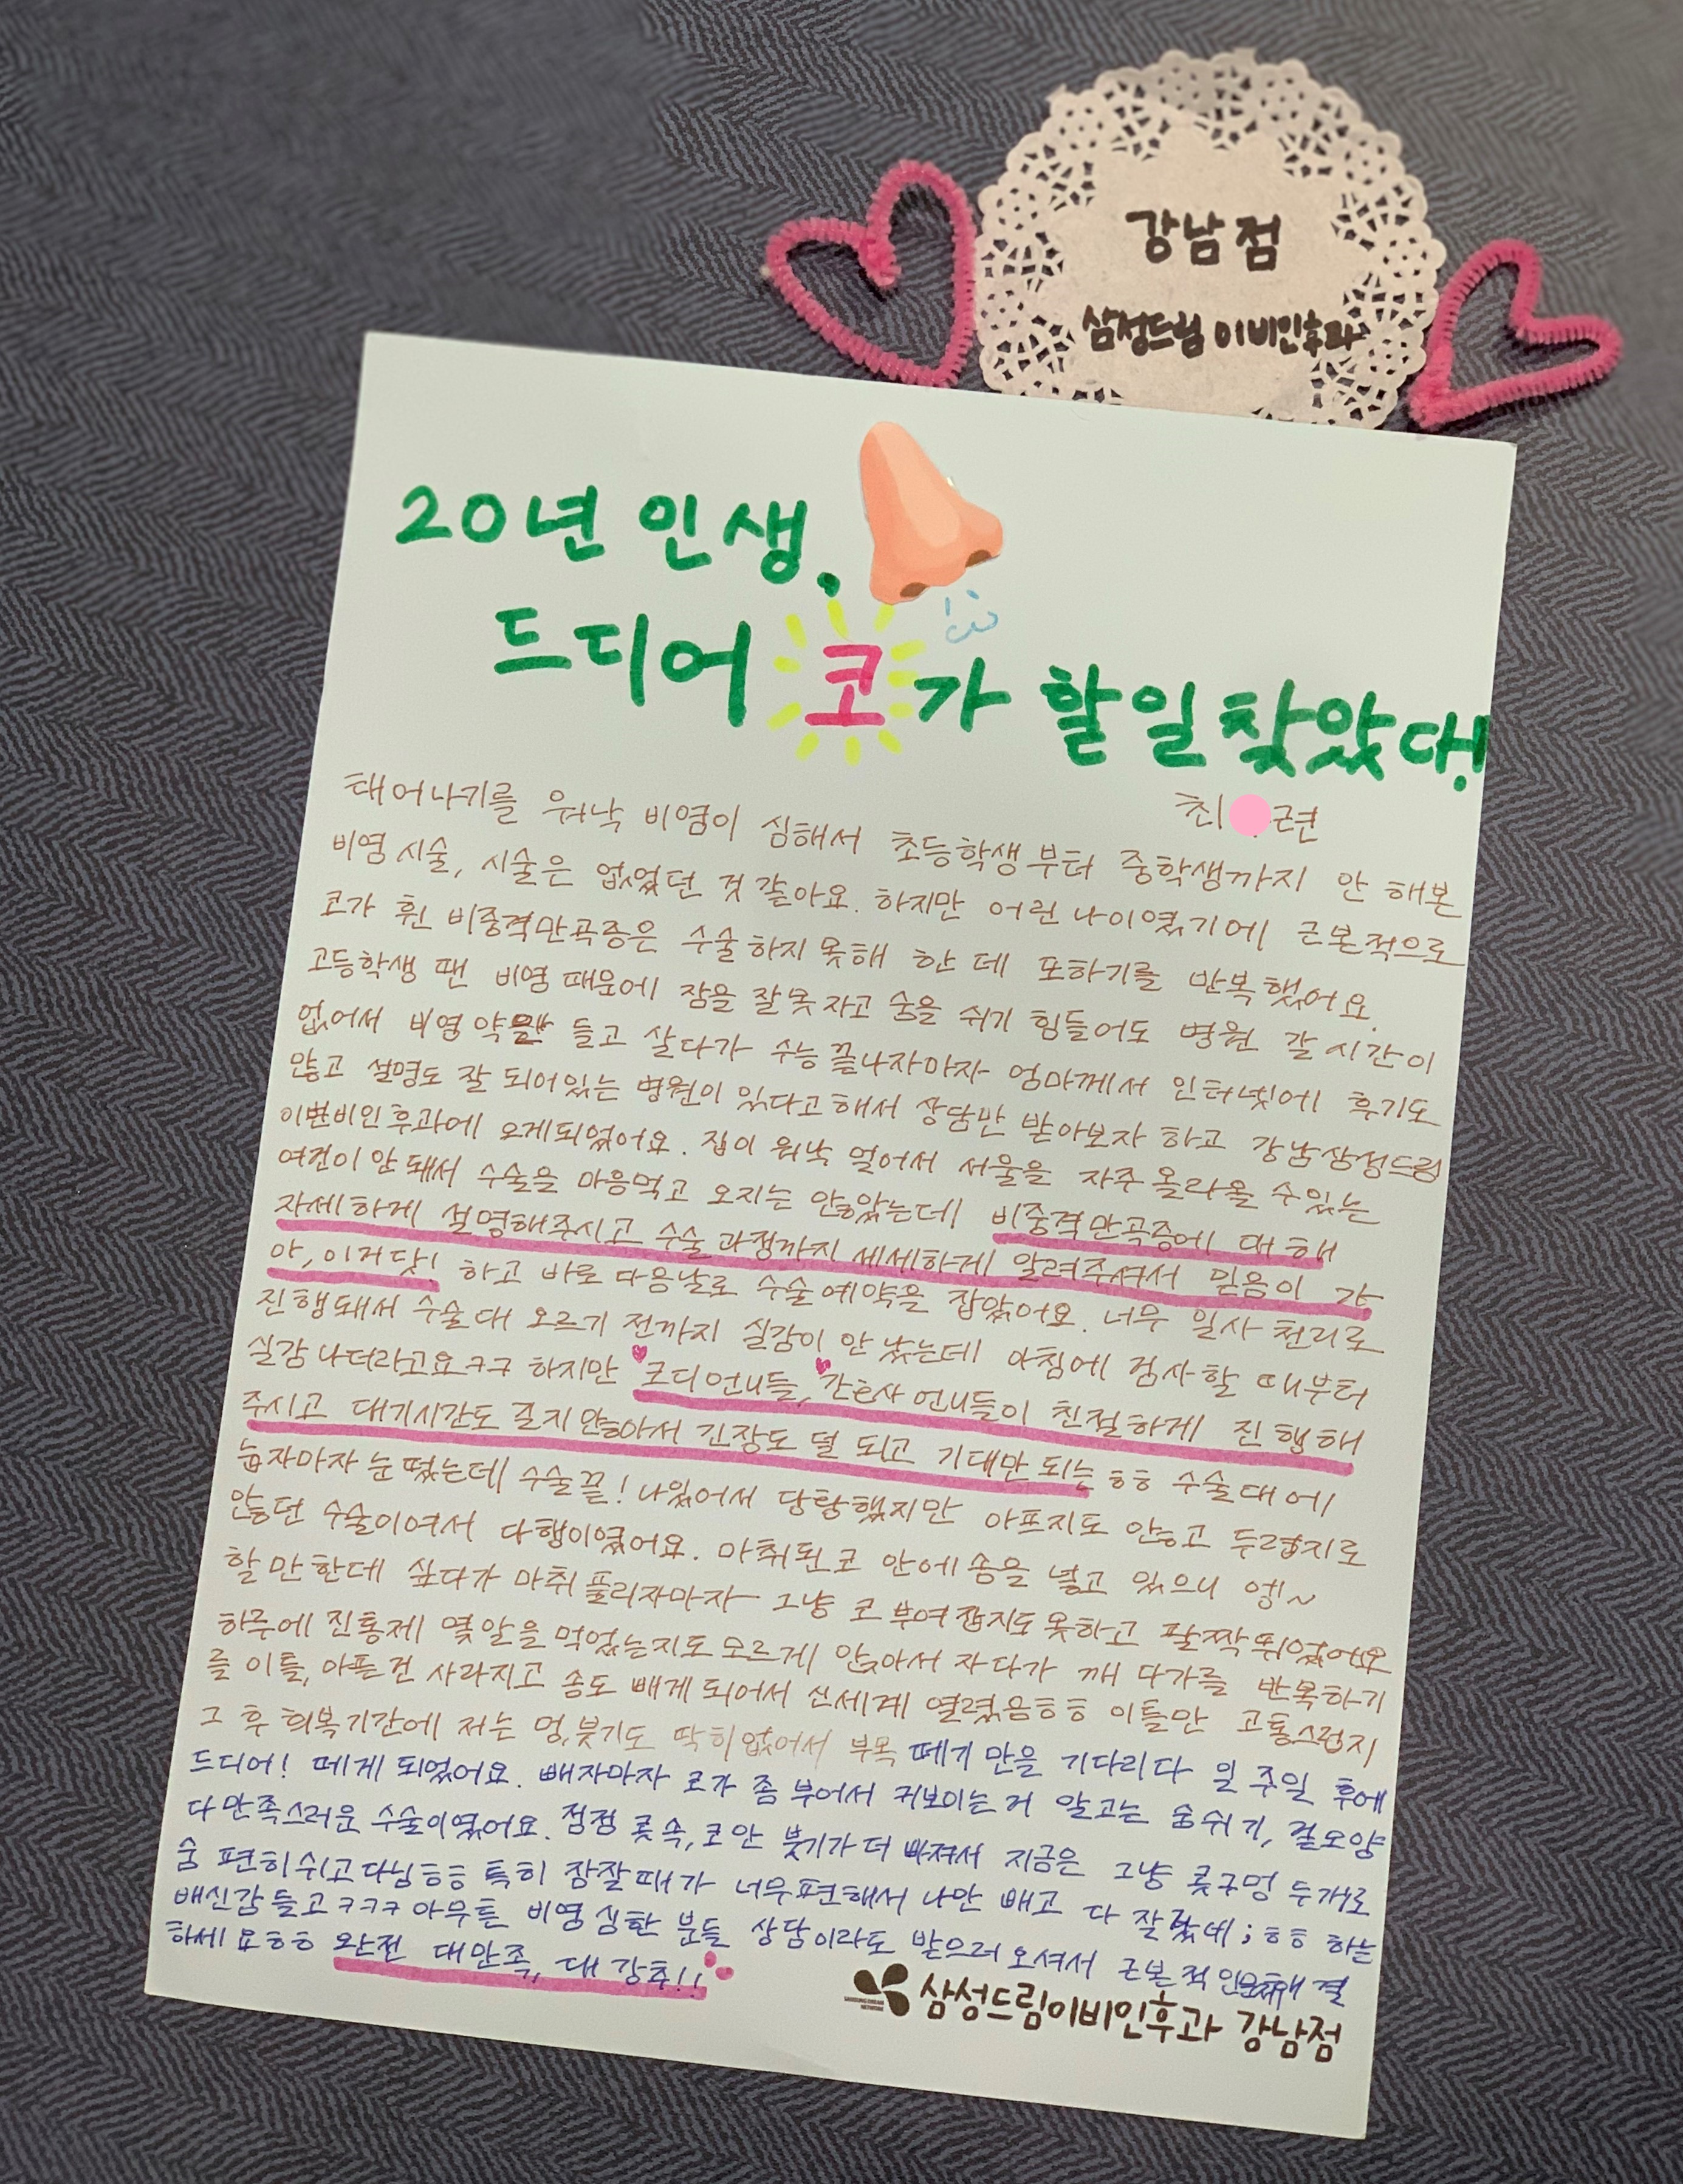 강남점
삼성드림 이비인후과
20년 인생,
드디어 코가 할일 찾았다!
최 근현
태어나기를 워낙 비염이 심해서 초등학생부터 중학생까지 안 해본
비염 시술, 시술은 없었던 것 같아요. 하지만 어린 나이였기에 근본적으로
코가 휜 비중격만곡증은 수술하지 못해 한 데 또하기를 반복했어요.
고등학생 땐 비염 때문에 잠을 잘 못 자고 숨을 쉬기 힘들어도 병원 갈 시간이
없어서 비염약 들고 살다가 수능 끝나자마자 엄마께서 인터넷에 후기도
많고 설명도 잘 되어있는 병원이 있다고 해서 상담만 받아보자 하고 강남삼성드림
이비인후과에 오게되었어요. 집이 워낙 멀어서 서울을 자주 올라올 수 있는
여건이 안 돼서 수술을 마음먹고 오지는 않았는데 비중격만곡증에 대해
자세하게 설명해주시고 수술 과정까지 세세하게 알려주셔서 믿음이 가
아, 이거닷! 하고 바로 다음날로 수술예약을 잡았어요. 너무 일사천리로
진행돼서 수술대 오르기 전까지 실감이 안 났는데 아침에 검사할 때부터
실감나더라고요ㅋㅋ 하지만 코디언니들, 간호사 언니들이 친절하게 진행해
주시고 대기시간도 길지 않아서 긴장도 덜 되고 기대만 되는 ㅎㅎ 수술대에
눕자마자 눈 떴는데 수술끝! 나있어서 당황했지만 아프지도 않고 두렵지도
않던 수술이여서 다행이였어요. 마취된 코 안에 솜을 넣고 있으니 엥!~
할 만한데 싶다가 마취 풀리자마자- 그냥 코 부여잡지도 못하고 팔짝 뛰었어요
하루에 진통제 몇알을 먹었는지도 모르게 앉아서 자다가 깨 다가를 반복하기
를 이틀, 아픈건 사라지고 솜도 빼게 되어서 신세계 열렸음ㅎㅎ 이틀만 고통스럽지
그 후 회복기간에 저는 멍,붓기도 딱히 없어서 부목 떼기 만을 기다리다 일 주일 후에
드디어! 떼게 되었어요. 빼자마자 코가 좀 부어서 커보이는거 말고는 숨쉬기, 겉모양
다 만족스러운 수술이였어요. 점점 콧 속, 코안 붓기가 더 빠져서 지금은 그냥 콧구멍 두개로
숨 편히쉬고다님ㅎㅎ 특히 잠잘때가 너무편해서 나만 빼고 다 잘잤네;ㅎㅎ 하는
배신감 들고ㅋㅋㅋ 아무튼 비염 심한 분들 상담이라도 받으러오셔서 근본적인 결
하세요ㅎㅎ 완전 대만족, 대 강추!!
삼성드림이비인후과 강남점